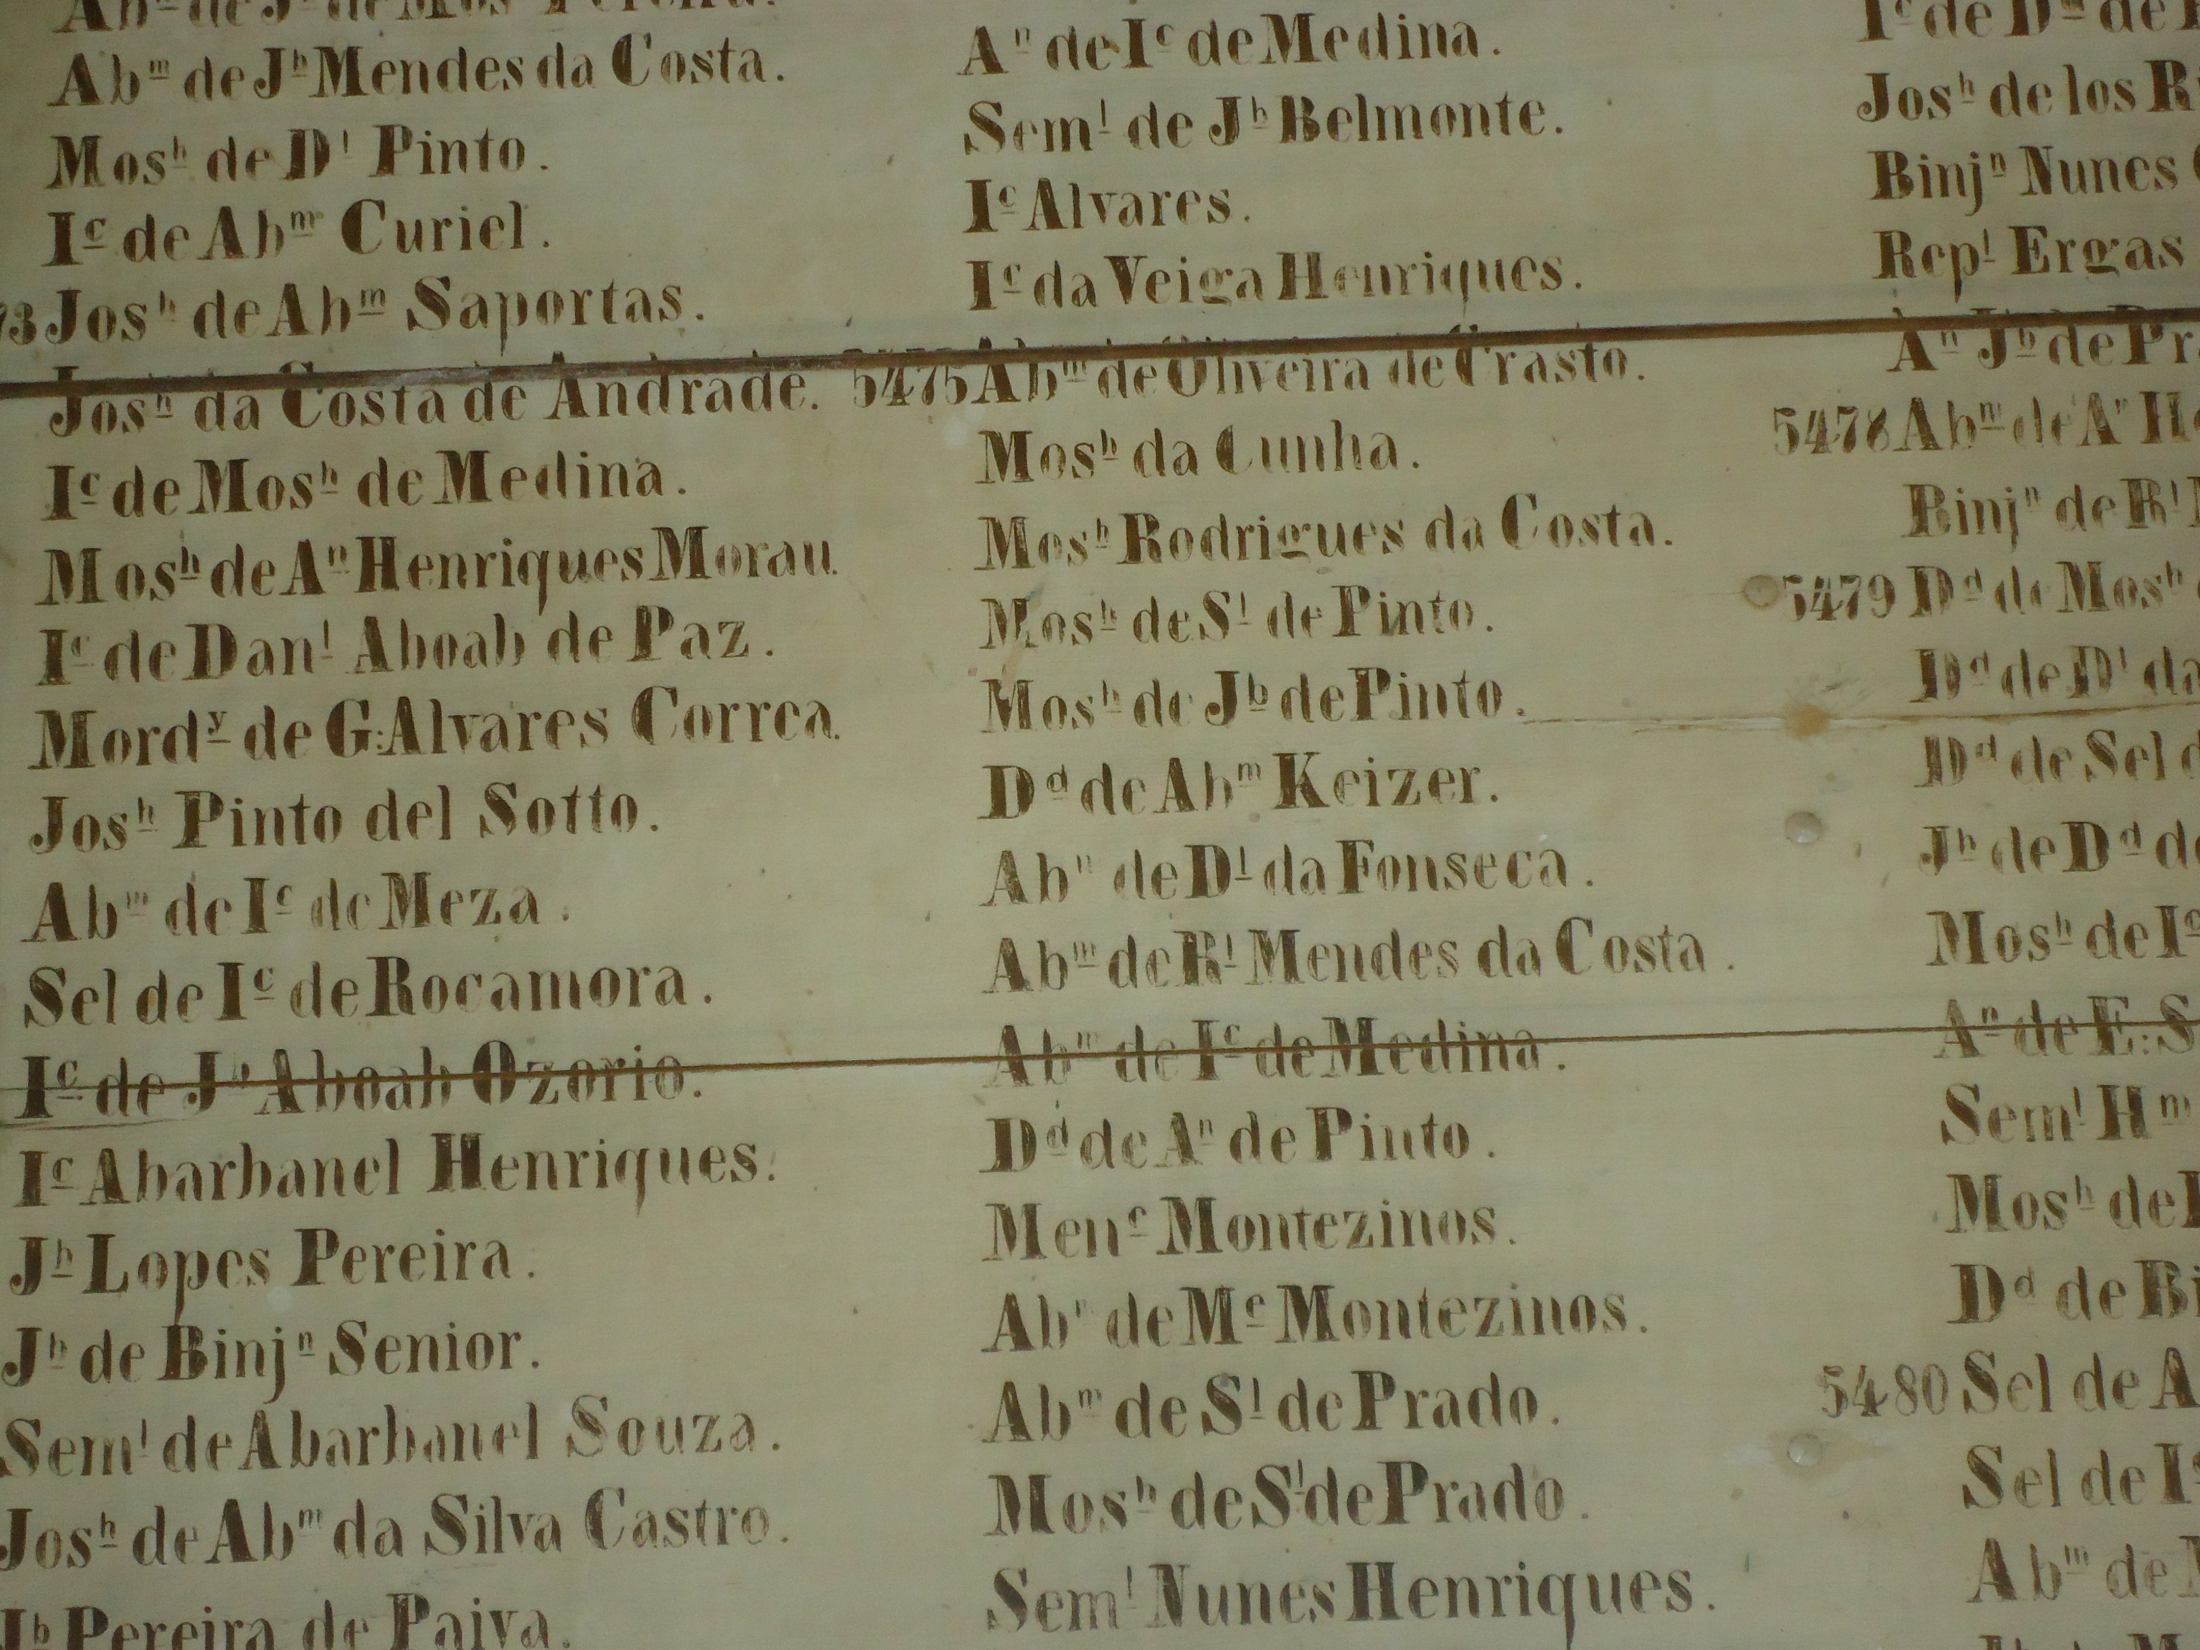 Abᵐ de Jᵇ Mendes da Costa.
Mosʰ de Dˡ Pinto.
Iᶜ de Abᵐ Curiel.
73 Josʰ de Abᵐ Saportas.
Josʰ da Costa de Andrade.
Iᶜ de Mosʰ de Medina.
Mosʰ de Aⁿ Henriques Morau
Iᶜ de Danˡ Aboab de Paz.
Mordʸ de G: Alvares Correa.
Josʰ Pinto del Sotto.
Abᵐ de Iᶜ de Meza.
Sel de Iᶜ de Rocamora.
Iᶜ de Jᵇ Aboab Ozorio.
Iᶜ Abarbanel Henriques.
Jᵇ Lopes Pereira.
Jᵇ de Binjⁿ Senior.
Semˡ de Abarbanel Souza.
Josʰ de Abᵐ da Silva Castro.
Jᵇ Pereira de Paiva.
Aⁿ de Iᶜ de Medina.
Semˡ de Jᵇ Belmonte.
Iᶜ Alvares.
Iᶜ da Veiga Henriques.
5475 Abᵐ de Oliveira de Crasto.
Mosʰ da Cunha.
Mosʰ Rodrigues da Costa.
Mosʰ de Sˡ de Pinto.
Mosʰ de Jᵇ de Pinto.
Dᵈ de Abᵐ Keizer.
Abᵐ de Dˡ da Fonseca.
Abᵐ de Rˡ Mendes da Costa.
Abᵐ de Iᶜ de Medina.
Dᵈ de Aⁿ de Pinto.
Menᵉ Montezinos.
Abᵐ de Mᵉ Montezinos.
Abᵐ de Sˡ de Prado.
Mosʰ de Sˡ de Prado.
Semˡ Nunes Henriques.
Iᶜ de Dᵐ de
Josʰ de los
Binjⁿ Nunes
Repˡ Ergas
Aⁿ Jᵇ de
5478 Abᵐ de Aⁿ
Binjⁿ de Rˡ
5479 Dᵈ de Mosʰ
Dᵈ de Dˡ da
Dᵈ de Sel
Jᵇ de Dᵈ
Mosʰ de Iᶜ
Aⁿ de E:
Semˡ Hᵐ
Mosʰ de
Dᵈ de
5480 Sel de
Sel de Iᶜ
Abᵐ de